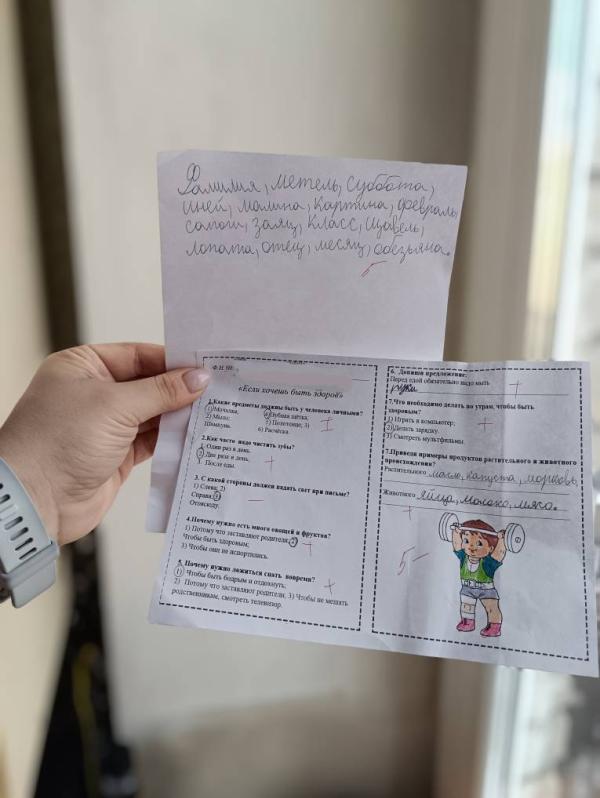 Фамилия, метель, суббота,
иней, малина, картина, февраль,
сапоги, заяц, класс, щавель,
лопата, отец, месяц, обезьяна.
5
Ф.И
«Если хочешь быть здоров»
1.Какие предметы должны быть у человека личными?
1) Мочалка, 4) Зубная щётка,
2) Мыло; 5) Полотенце; 3)
Шампунь. 6) Расчёска.
2.Как часто надо чистить зубы?
1. Один раз в день.
2) Два раза в день.
3. После еды.
3. С какой стороны должен падать свет при письме?
1) Слева; 2)
Справа; 3)
Отовсюду.
4.Почему нужно есть много овощей и фруктов?
1) Потому что заставляют родители; 2)
Чтобы быть здоровым;
3) Чтобы они не испортились.
5. Почему нужно ложиться спать вовремя?
1) Чтобы быть бодрым и отдохнуть;
2) Потому что заставляют родители, 3) Чтобы не мешать
родственникам, смотреть телевизор.
6. Допиши предложение:
Перед едой обязательно надо мыть
руки
7.Что необходимо делать по утрам, чтобы быть
здоровым?
1) Играть в компьютер;
2) Делать зарядку.
3) Смотреть мультфильмы.
7.Приведи примеры продуктов растительного и животного
происхождения?
Растительного масло, капуста, морковь,
Животного яйца, молоко, мясо.
5-